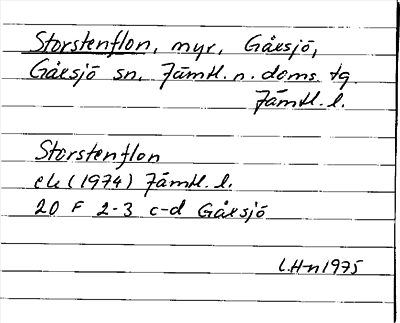 Storstenflon, myr, Gåxsjö,
Gåxsjö sn, Jämtl. n. doms. tg
Jämtl. l.
Storstenflon
ek (1974) Jämtl. l.
20 F 2-3 c-d Gåxsjö
L.H-n 1975